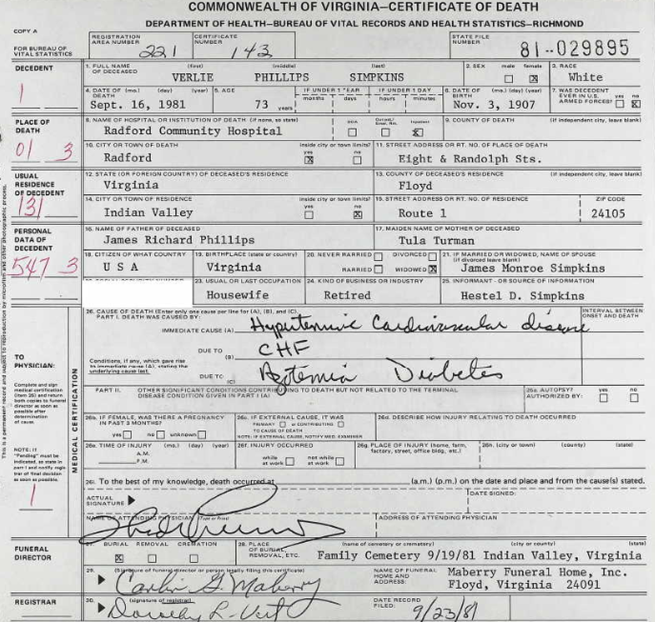 COMMONWEALTH OF VIRGINIA—CERTIFICATE OF DEATH
DEPARTMENT OF HEALTH—BUREAU OF VITAL RECORDS AND HEALTH STATISTICS—RICHMOND
COPY A
FOR BUREAU OF VITAL STATISTICS
REGISTRATION AREA NUMBER 221 CERTIFICATE NUMBER 143 STATE FILE NUMBER 81-029895
DECEDENT 1
1. FULL NAME OF DECEASED (first) (middle) (last) 2. SEX male female 3. RACE
VERLIE PHILLIPS SIMPKINS ☐ ☒ White
4. DATE OF DEATH (mo.) (day) (year) 5. AGE IF UNDER 1 YEAR months days IF UNDER 1 DAY hours minutes 6. DATE OF BIRTH (mo.) (day) (year) 7. WAS DECEDENT EVER IN U.S. ARMED FORCES? yes no
Sept. 16, 1981 73 years Nov. 3, 1907 ☐ ☒
PLACE OF DEATH 01 3
8. NAME OF HOSPITAL OR INSTITUTION OF DEATH (if none, so state) DOA Inpatient 9. COUNTY OF DEATH (if independent city, leave blank)
Radford Community Hospital ☐ ☐ ☒
10. CITY OR TOWN OF DEATH inside city or town limits? yes no 11. STREET ADDRESS OR RT. NO. OF PLACE OF DEATH
Radford ☒ ☐ Eight & Randolph Sts.
USUAL RESIDENCE OF DECEDENT 131
12. STATE (OR FOREIGN COUNTRY) OF DECEASED'S RESIDENCE 13. COUNTY OF DECEASED'S RESIDENCE (if independent city, leave blank)
Virginia Floyd
14. CITY OR TOWN OF RESIDENCE inside city or town limits? yes no 15. STREET ADDRESS OR RT. NO. OF RESIDENCE ZIP CODE
Indian Valley ☐ ☒ Route 1 24105
PERSONAL DATA OF DECEDENT 547 3
16. NAME OF FATHER OF DECEASED 17. MAIDEN NAME OF MOTHER OF DECEASED
James Richard Phillips Tula Turman
18. CITIZEN OF WHAT COUNTRY 19. BIRTHPLACE (state or country) 20. NEVER MARRIED ☐ DIVORCED ☐ 21. IF MARRIED OR WIDOWED, NAME OF SPOUSE (if divorced leave blank)
U S A Virginia MARRIED ☐ WIDOWED ☒ James Monroe Simpkins
23. USUAL OR LAST OCCUPATION 24. KIND OF BUSINESS OR INDUSTRY 25. INFORMANT - OR SOURCE OF INFORMATION
Housewife Retired Hestel D. Simpkins
26. CAUSE OF DEATH (Enter only one cause per line for (A), (B), and (C).) INTERVAL BETWEEN ONSET AND DEATH
PART I. DEATH WAS CAUSED BY:
IMMEDIATE CAUSE (A) Hypertensive Cardiovascular disease
DUE TO (B) CHF
Conditions, if any, which gave rise to immediate cause (A), stating the underlying cause last.
DUE TO: (C) Azotemia Diabetes
TO PHYSICIAN:
Complete and sign medical certification (item 26) and return both copies to funeral director as soon as possible after determination of cause.
NOTE: If "Pending" must be indicated, as state in part I and notify registrar of final decision as soon as possible.
1
MEDICAL CERTIFICATION
This is a permanent record
PART II. OTHER SIGNIFICANT CONDITIONS CONTRIBUTING TO DEATH BUT NOT RELATED TO THE TERMINAL DISEASE CONDITION GIVEN IN PART I (A) AUTOPSY? AUTHORIZED BY: yes no
IF FEMALE, WAS THERE A PREGNANCY IN PAST 3 MONTHS? IF EXTERNAL CAUSE, IT WAS PRIMARY or CONTRIBUTING TO CAUSE OF DEATH DESCRIBE HOW INJURY RELATING TO DEATH OCCURRED
yes ☐ no ☐ unknown ☐ NOTE: IF EXTERNAL CAUSE, NOTIFY MED. EXAMINER
TIME OF INJURY (mo.) (day) (year) INJURY OCCURRED PLACE OF INJURY (home, farm, factory, street, office bldg, etc.) (city or town) (county) (state)
A.M. P.M. while at work ☐ not while at work ☐
To the best of my knowledge, death occurred at (a.m.) (p.m.) on the date and place and from the cause(s) stated.
ACTUAL SIGNATURE DATE SIGNED:
NAME OF ATTENDING PHYSICIAN (Type or Print) ADDRESS OF ATTENDING PHYSICIAN
FUNERAL DIRECTOR
BURIAL REMOVAL CREMATION 28. PLACE OF BURIAL, REMOVAL, ETC. (name of cemetery or crematory) (city or county) (state)
☒ ☐ ☐ Family Cemetery 9/19/81 Indian Valley, Virginia
29. (Signature of funeral director or person legally filing this certificate) NAME OF FUNERAL HOME AND ADDRESS: Maberry Funeral Home, Inc.
Carlin G. Maberry Floyd, Virginia 24091
REGISTRAR
30. (signature of registrar) DATE RECORD FILED:
Dorothy L. Vest 9/23/81